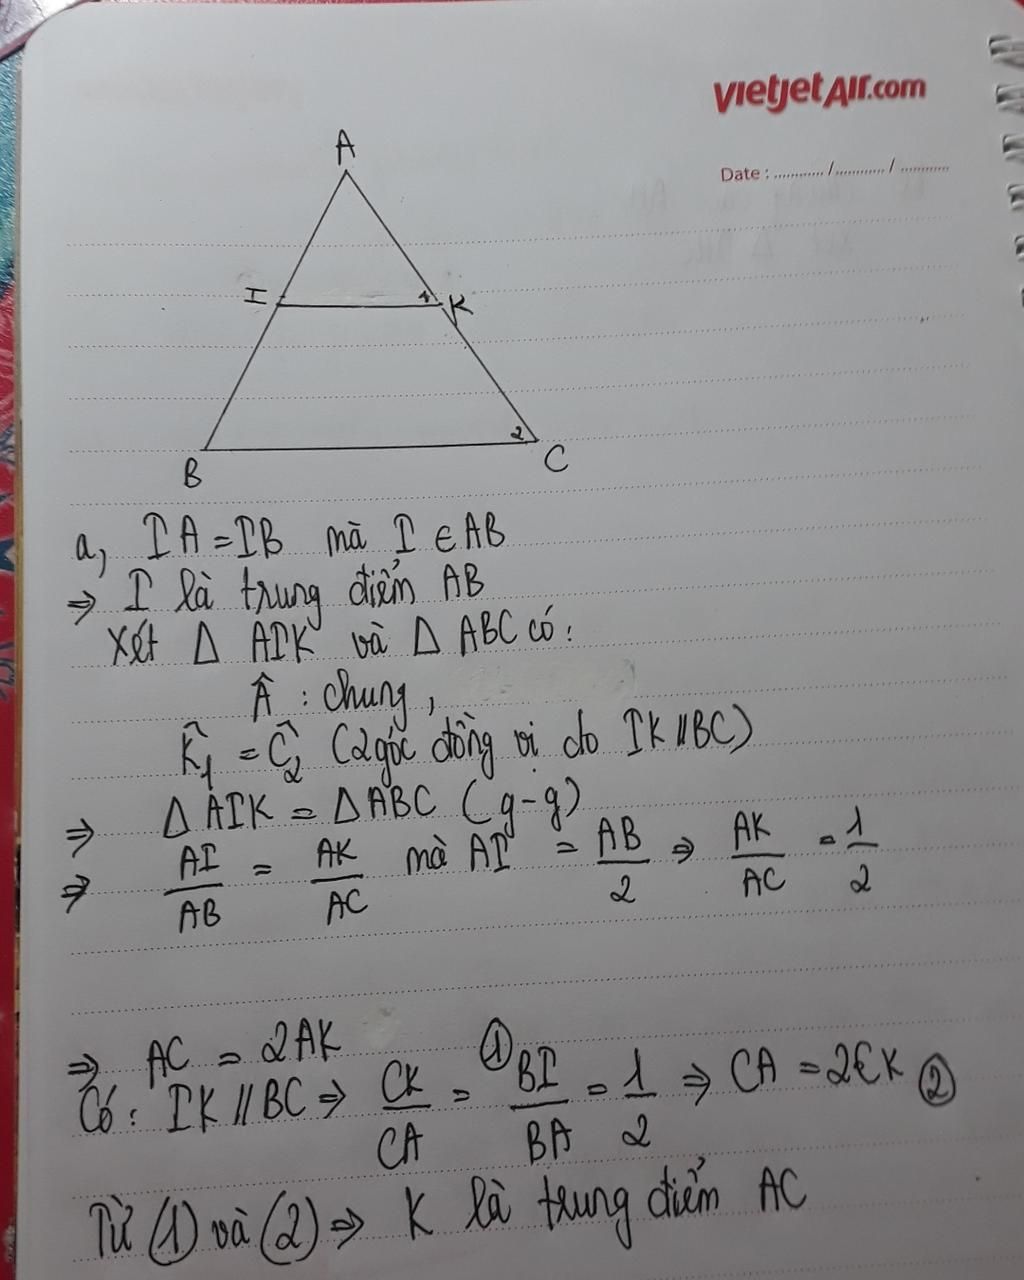 vietjetAir.com
Date : ............ /............ / ............
A
I
1
K
2
B
C
a, IA = IB mà I ∈ AB
⇒ I là trung điểm AB
Xét Δ AIK và Δ ABC có :
Â : chung,
K̂₁ = Ĉ₂ (2 góc đồng vị do IK // BC)
⇒ Δ AIK = Δ ABC (g-g)
⇒ AI/AB = AK/AC mà AI = AB/2 ⇒ AK/AC = 1/2
⇒ AC = 2AK ①
Có : IK // BC ⇒ CK/CA = BI/BA = 1/2 ⇒ CA = 2CK ②
Từ (1) và (2) ⇒ K là trung điểm AC